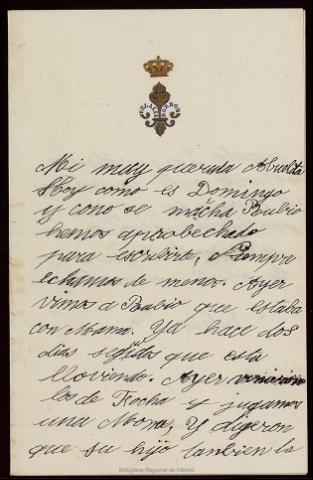 EULALIA
BORBON
Mi muy querida Abuelita
Hoy como es Domingo
y cono se macha Rubio
hemos aprobechado
para escribirte, siempre
echamos de menos. Ayer
vimos a Rubio que estaba
con Mama. Ya hace dos
dias segidos que esta
lloviendo. Ayer vinieron
los de Rocha y jugamos
una Mona, y digeron
que su hijo tanbien la
Biblioteca Regional de Madrid